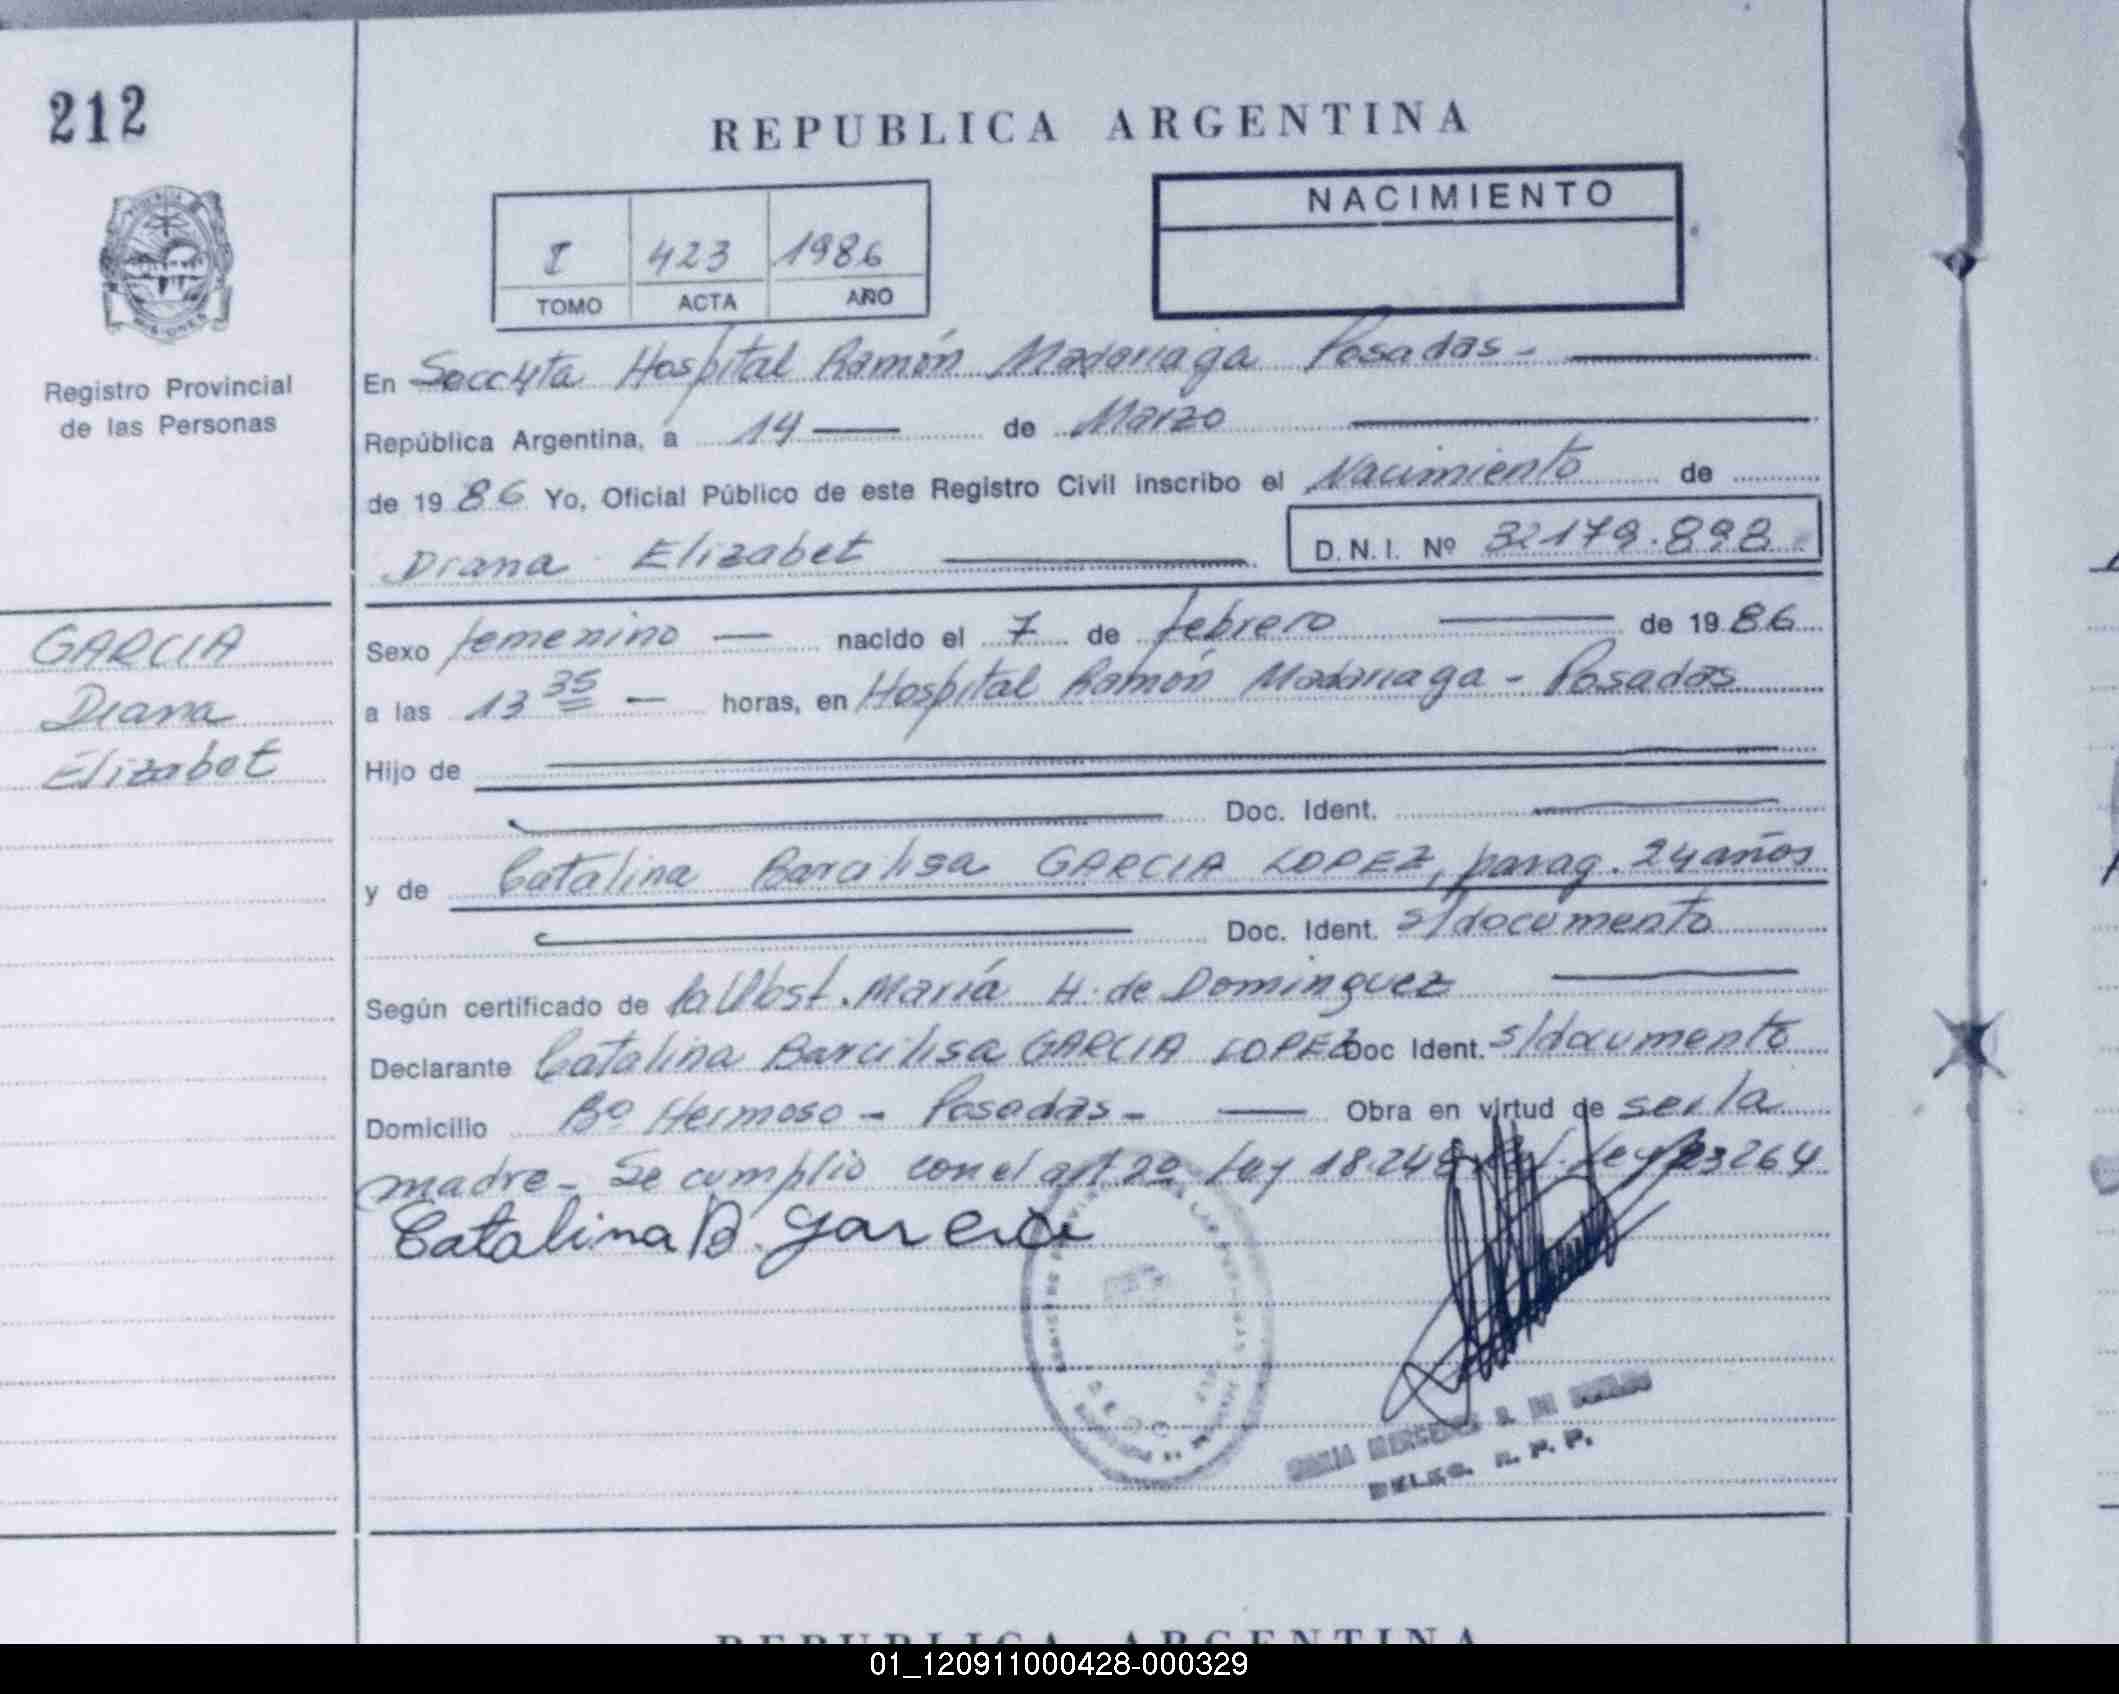 212
REPUBLICA ARGENTINA
NACIMIENTO
I 423 1986
TOMO ACTA AÑO
Registro Provincial
de las Personas
En Secc 4ta Hospital Ramón Madariaga Posadas -
República Argentina, a 14 de Marzo
de 1986 Yo, Oficial Público de este Registro Civil inscribo el Nacimiento de
Diana Elizabet D.N.I. Nº 32179.898
GARCIA
Diana
Elizabet
Sexo femenino nacido el 7 de febrero de 1986
a las 13 35 horas, en Hospital Ramón Madariaga - Posadas
Hijo de
Doc. Ident.
y de Catalina Barcilisa GARCIA LOPEZ, parag. 24 años
Doc. Ident. s/documento
Según certificado de la Obst. María H. de Dominguez
Declarante Catalina Barcilisa GARCIA LOPEZ Doc Ident. s/documento
Domicilio Bº Hermoso - Posadas - Obra en virtud de ser la
madre - Se cumplio con el art 2º Ley 18.248 Ley 23264
Catalina B. Garcia
DELEG. R. P. P.
REPUBLICA ARGENTINA
01_120911000428-000329